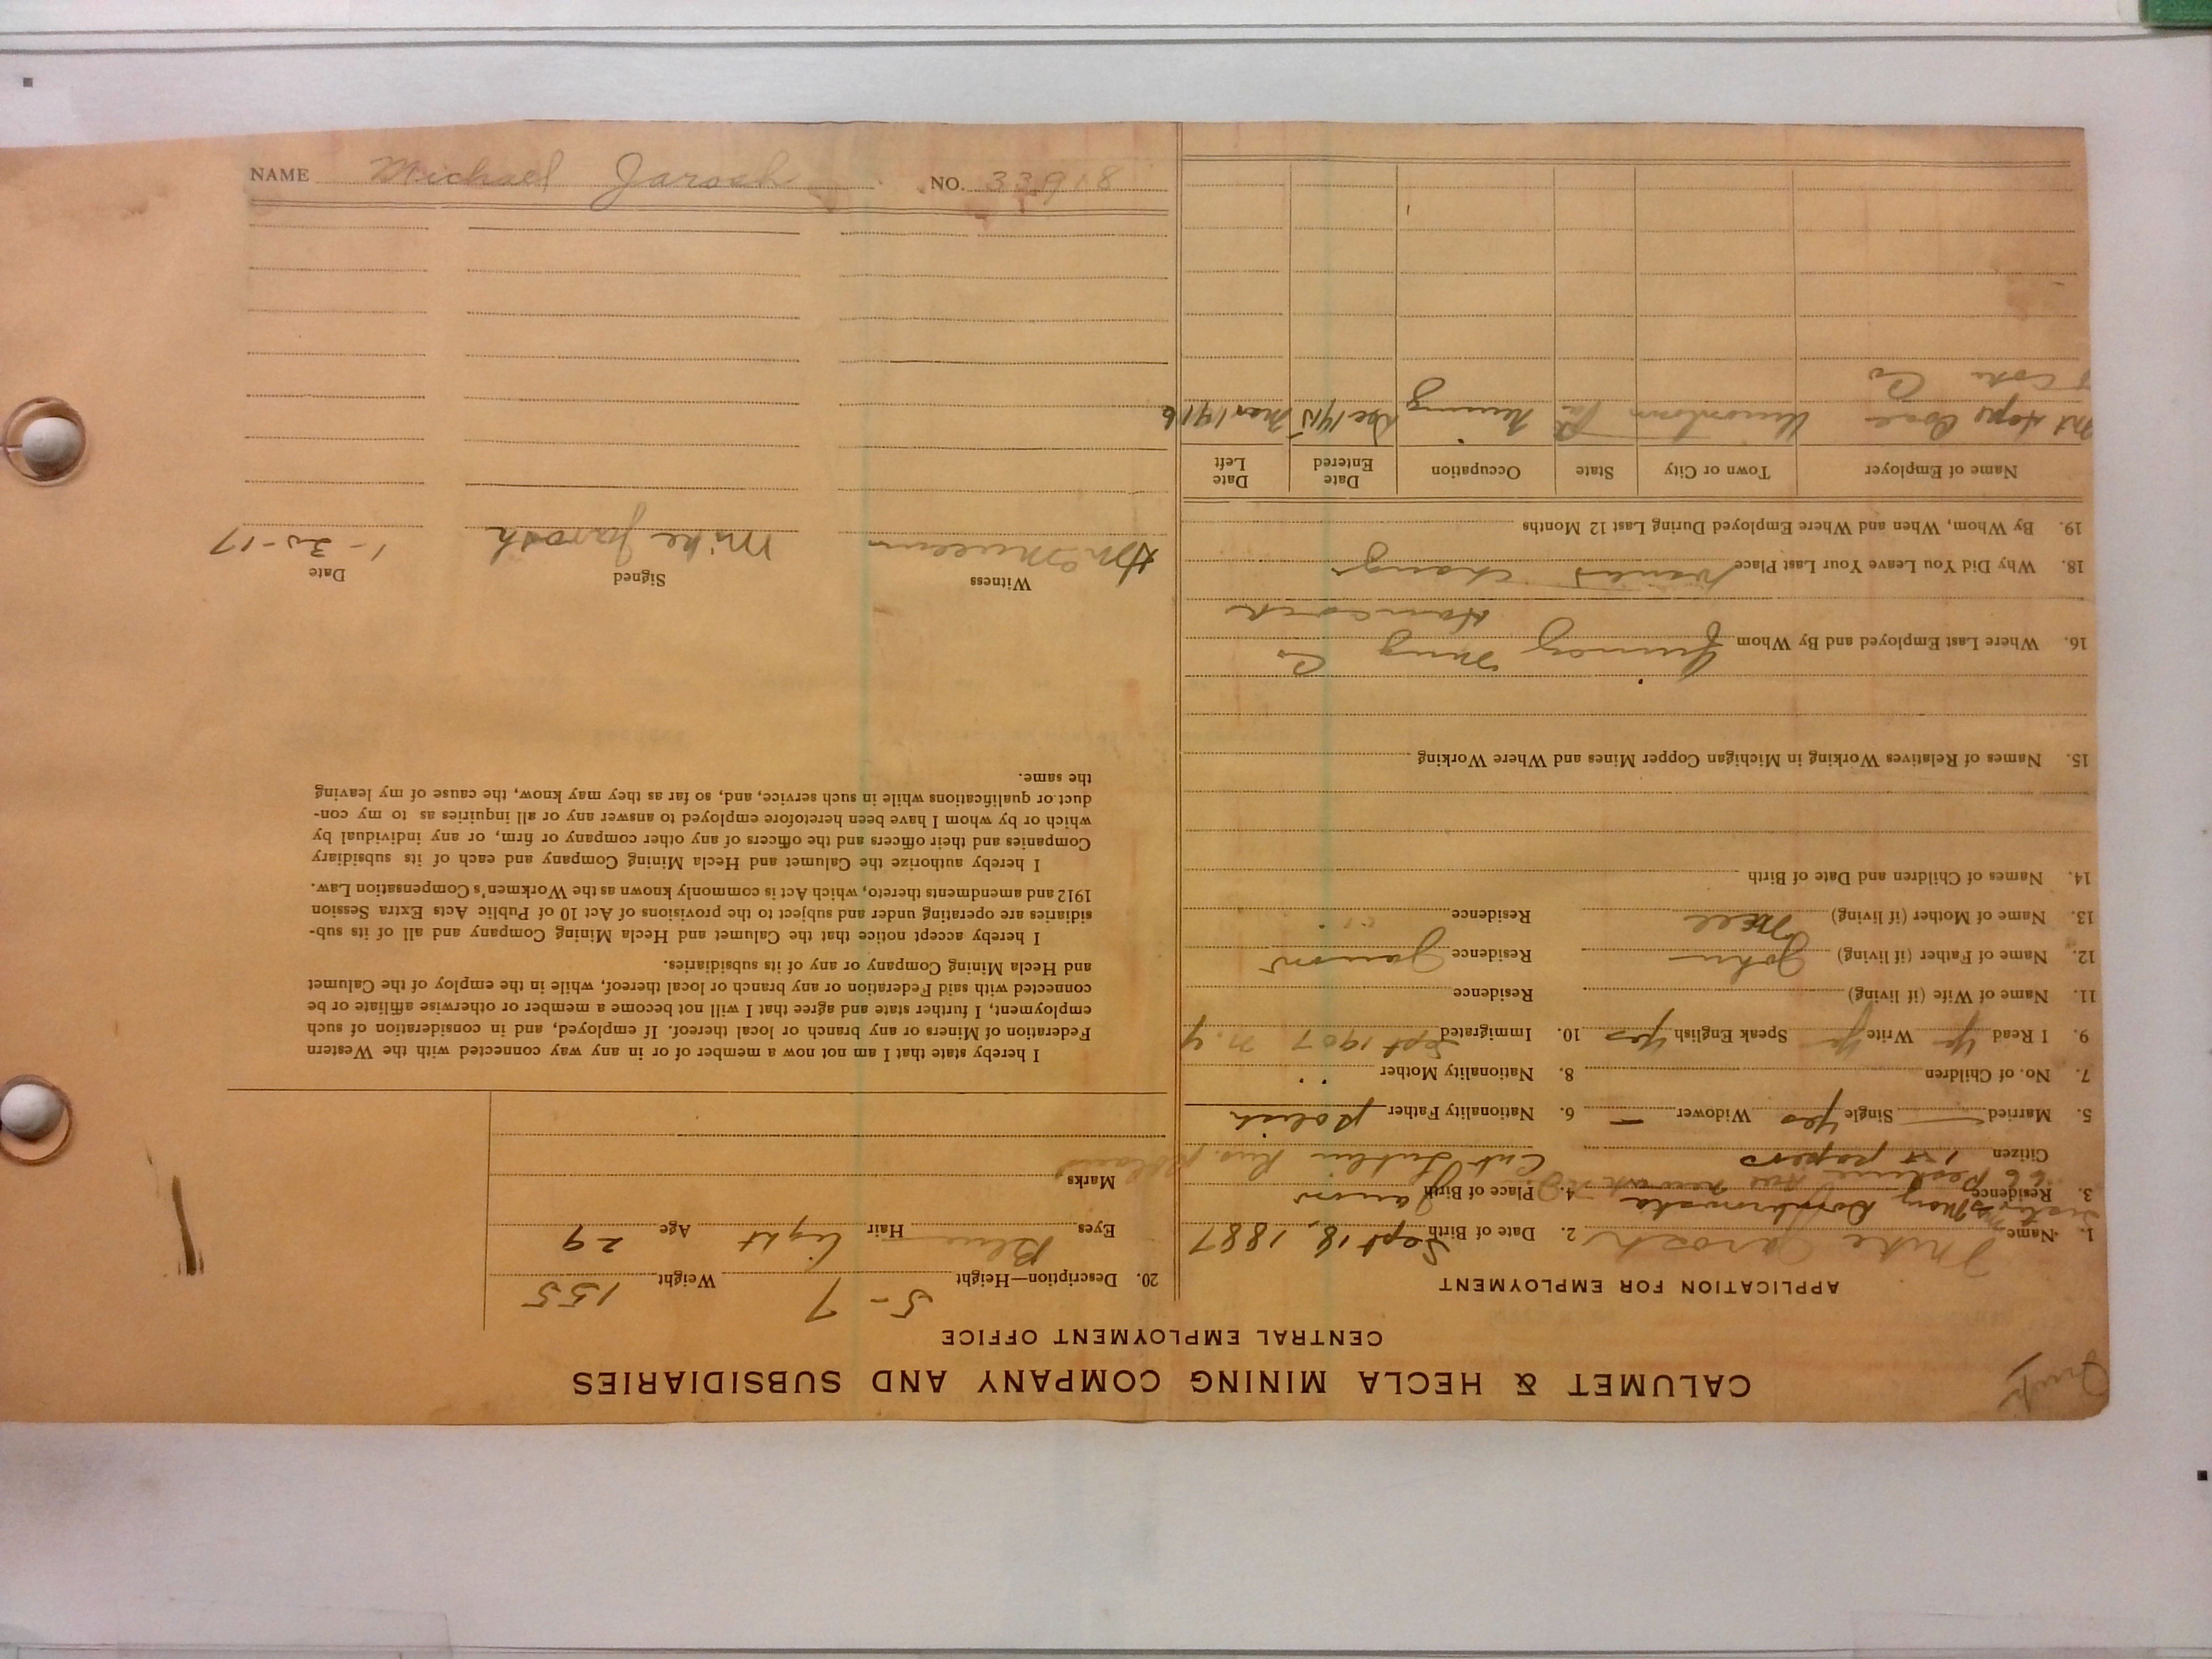 NAME Michael Jarosh NO. 33918
CALUMET & HECLA MINING COMPANY AND SUBSIDIARIES
CENTRAL EMPLOYMENT OFFICE
APPLICATION FOR EMPLOYMENT
1. Name Mike Jarosh 2. Date of Birth Sept 18, 1887
3. Residence 4. Place of Birth Janow
Citizen 1st papers
5. Married Single Yes Widower — 6. Nationality Father Polish
7. No. of Children 8. Nationality Mother "
9. I Read Yes Write Yes Speak English Yes 10. Immigrated Sept 1907 N.Y
11. Name of Wife (if living) Residence
12. Name of Father (if living) John Residence Janow
13. Name of Mother (if living) Residence "
14. Names of Children and Date of Birth
15. Names of Relatives Working in Michigan Copper Mines and Where Working
16. Where Last Employed and By Whom Quincy Mng Co
Hancock
18. Why Did You Leave Your Last Place Wanted change
19. By Whom, When and Where Employed During Last 12 Months
Name of Employer Town or City State Occupation Date Entered Date Left
Mt Hope Coal Uniontown Pa Mining Dec 1915 Mar 1916
& Coke Co
20. Description—Height 5-7 Weight 155
Eyes Blue Hair light Age 29
Marks
I hereby state that I am not now a member of or in any way connected with the Western
Federation of Miners or any branch or local thereof. If employed, and in consideration of such
employment, I further state and agree that I will not become a member or otherwise affiliate or be
connected with said Federation or any branch or local thereof, while in the employ of the Calumet
and Hecla Mining Company or any of its subsidiaries.
I hereby accept notice that the Calumet and Hecla Mining Company and all of its sub-
sidiaries are operating under and subject to the provisions of Act 10 of Public Acts Extra Session
1912 and amendments thereto, which Act is commonly known as the Workmen's Compensation Law.
I hereby authorize the Calumet and Hecla Mining Company and each of its subsidiary
Companies and their officers and the officers of any other company or firm, or any individual by
which or by whom I have been heretofore employed to answer any or all inquiries as to my con-
duct or qualifications while in such service, and, so far as they may know, the cause of my leaving
the same.
Witness Signed Date
Mike Jarosh 1-30-17